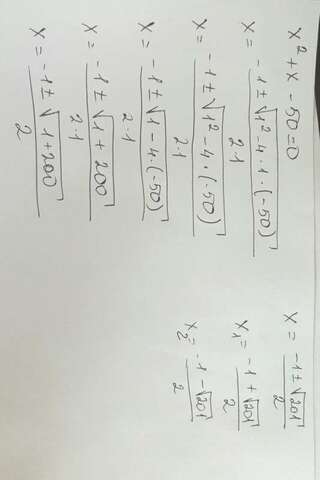 x² + x - 50 = 0
x = (-1 ± √(1² - 4 · 1 · (-50))) / (2·1)
x = (-1 ± √(1² - 4 · (-50))) / (2·1)
x = (-1 ± √(1 - 4 · (-50))) / (2·1)
x = (-1 ± √(1 + 200)) / (2·1)
x = (-1 ± √(1 + 200)) / 2
x = (-1 ± √201) / 2
x₁ = (-1 + √201) / 2
x₂ = (-1 - √201) / 2